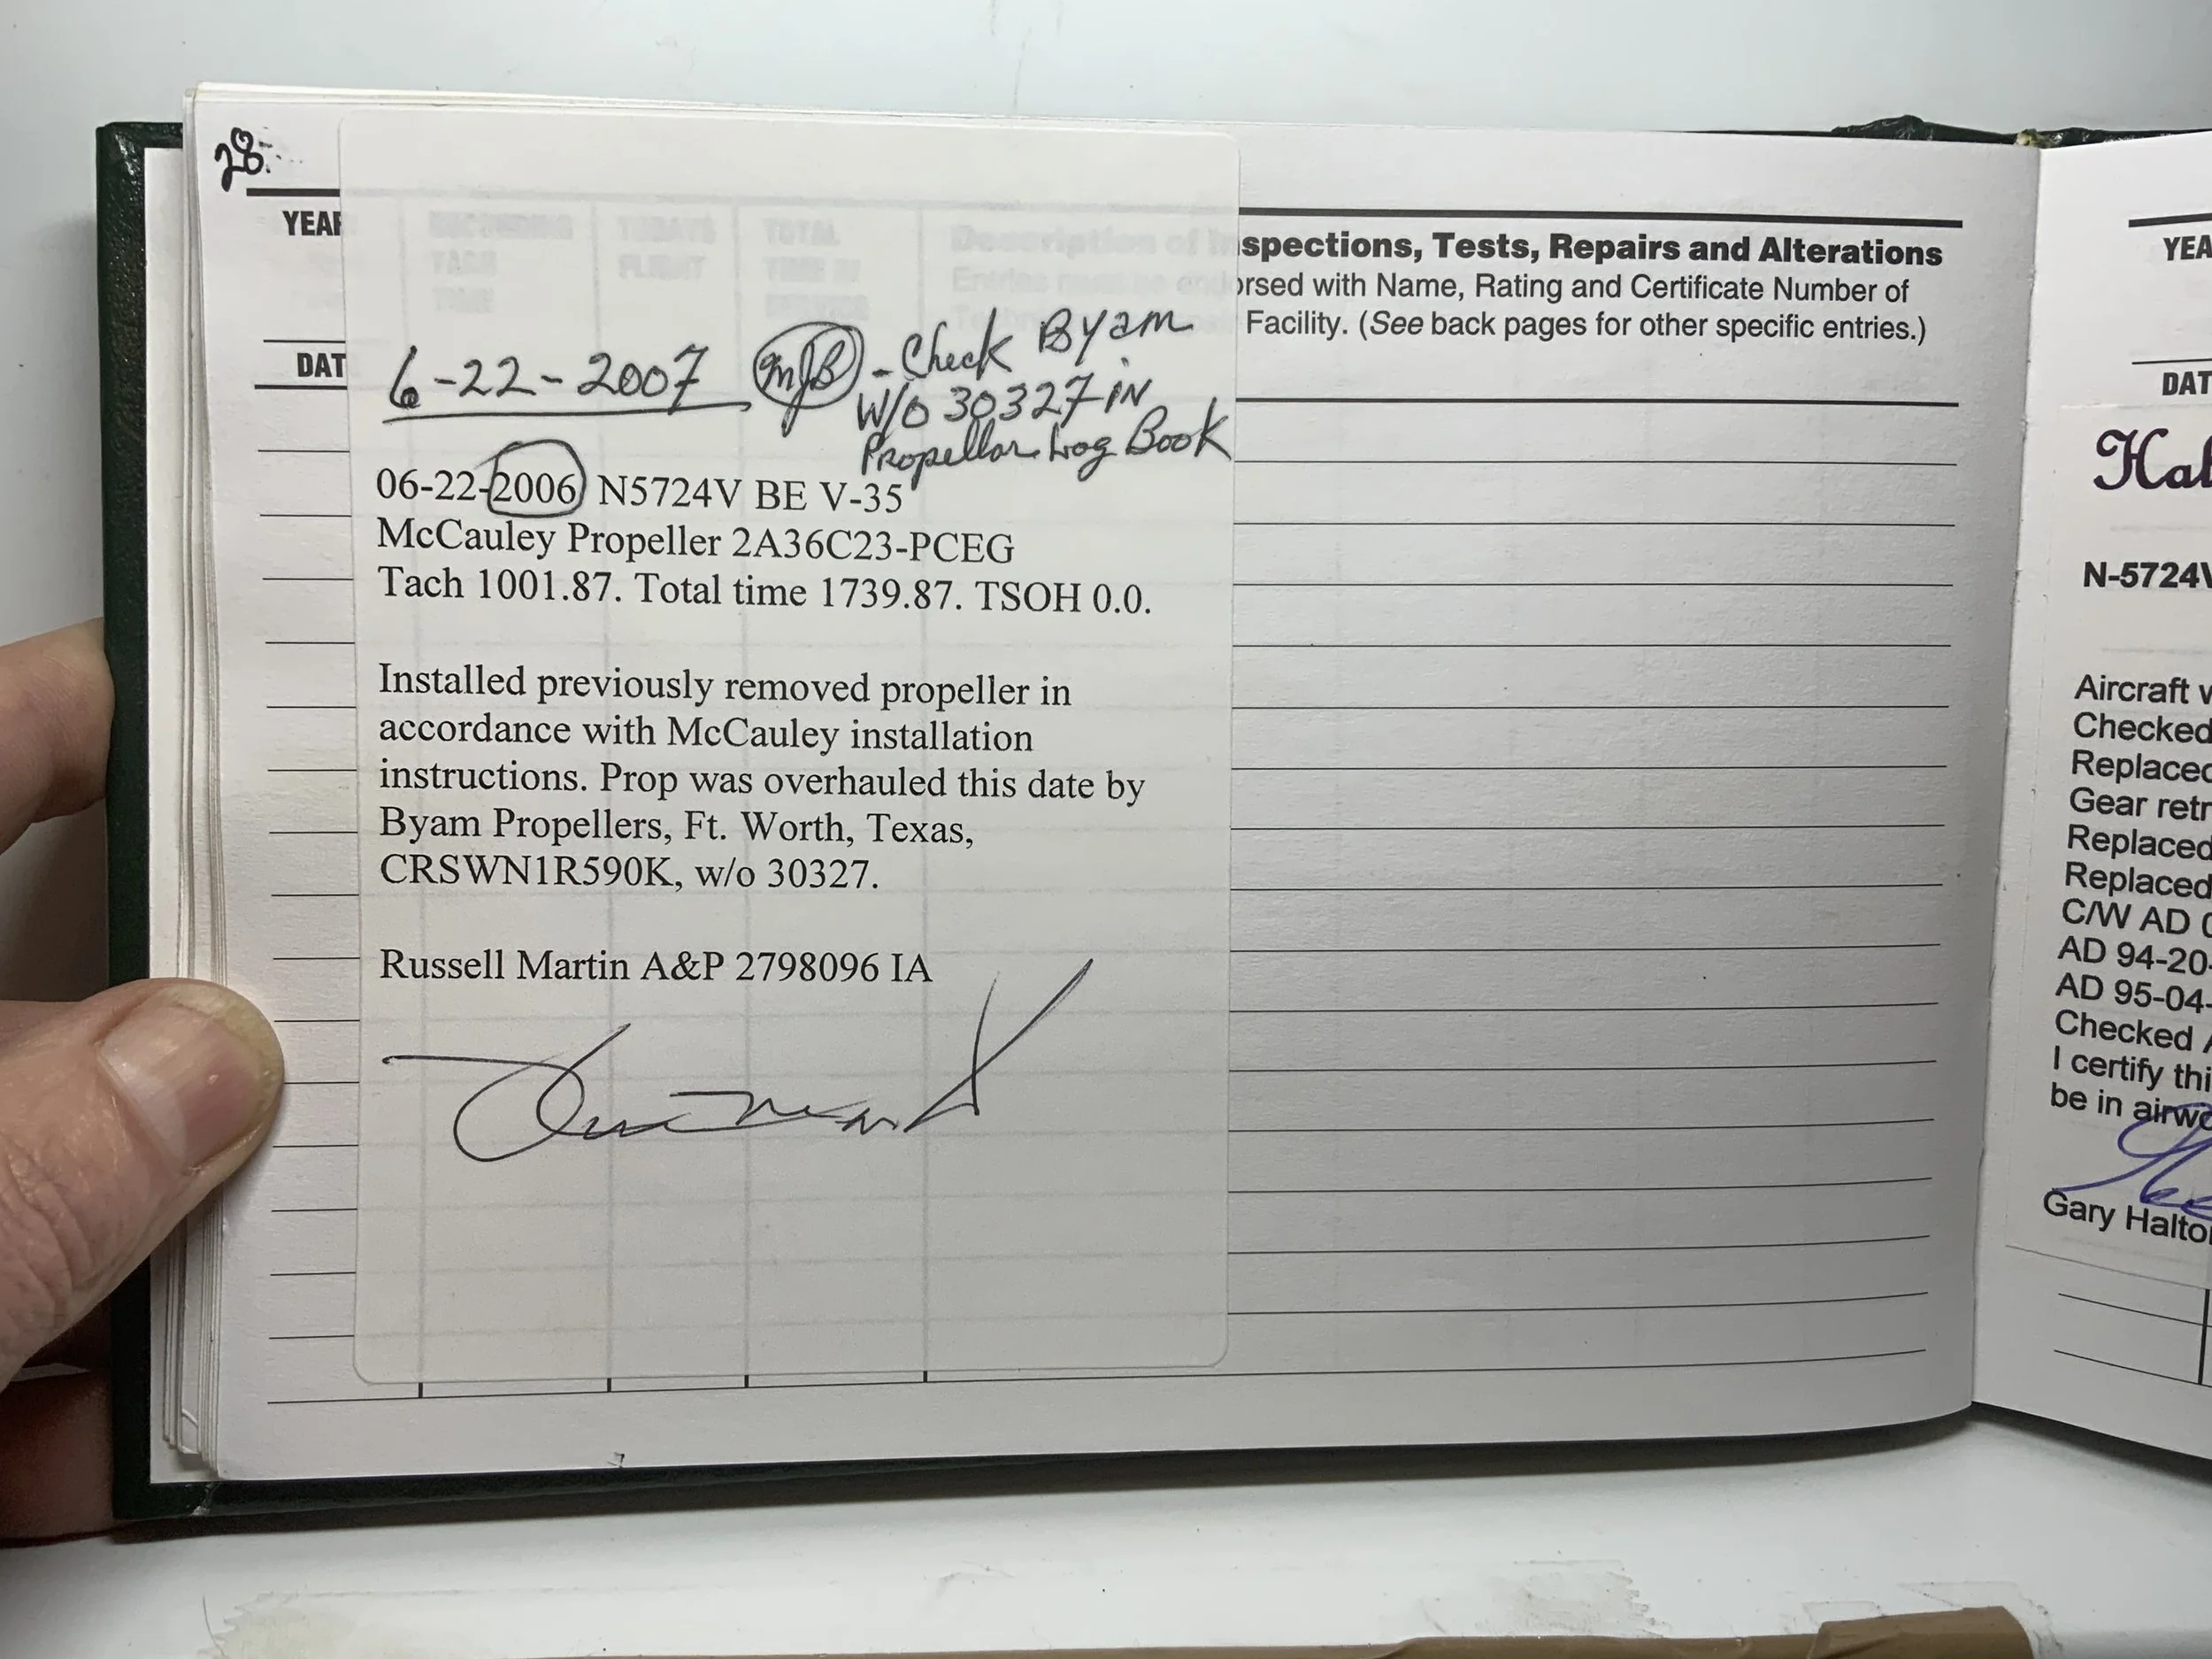 28.
YEAR
spections, Tests, Repairs and Alterations
orsed with Name, Rating and Certificate Number of
Facility. (See back pages for other specific entries.)
DAT
6-22-2007 MJB - Check Byam
W/O 30327 in
Propellar Log Book
06-22-2006 N5724V BE V-35
McCauley Propeller 2A36C23-PCEG
Tach 1001.87. Total time 1739.87. TSOH 0.0.
Installed previously removed propeller in
accordance with McCauley installation
instructions. Prop was overhauled this date by
Byam Propellers, Ft. Worth, Texas,
CRSWN1R590K, w/o 30327.
Russell Martin A&P 2798096 IA
YEA
DAT
Hal
N-5724V
Aircraft w
Checked
Replaced
Gear retr
Replaced
Replaced
C/W AD 0
AD 94-20-
AD 95-04-
Checked A
I certify thi
be in airwo
Gary Halto